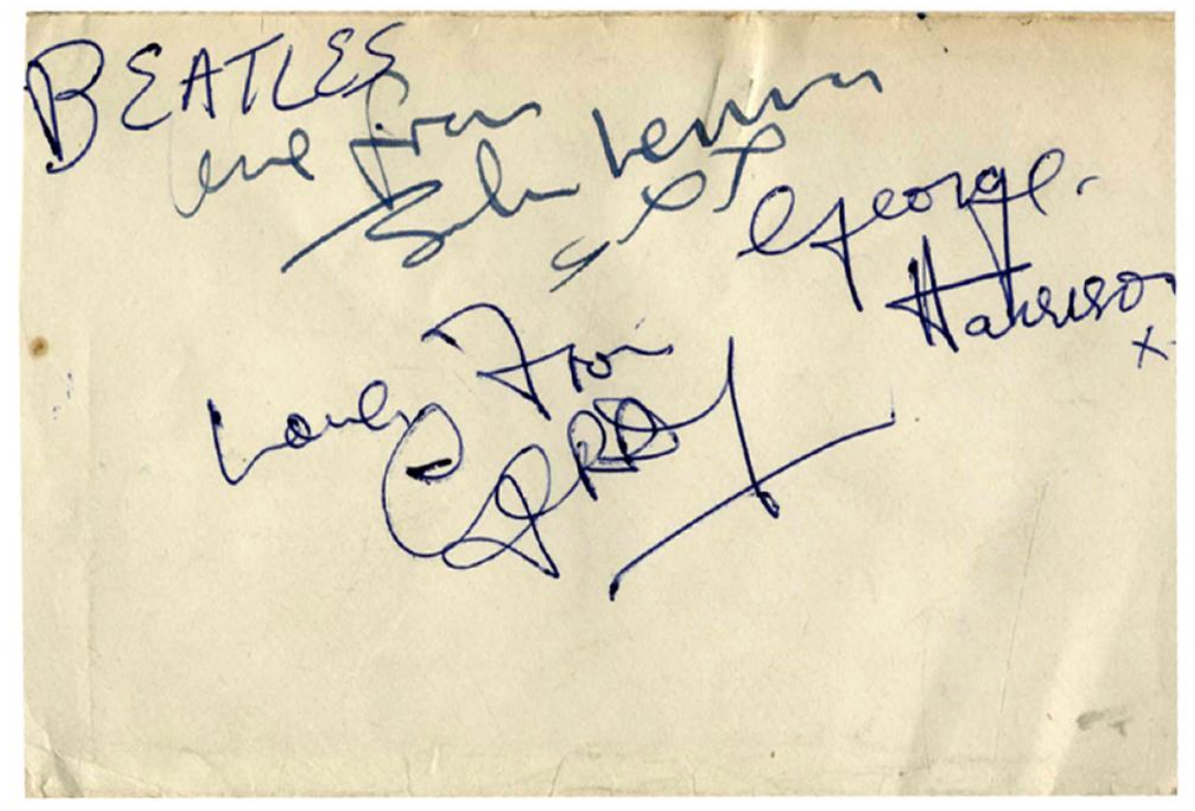 BEATLES
love from
John Lennon
xxx
George
Harrison
x
Love From
GERRY